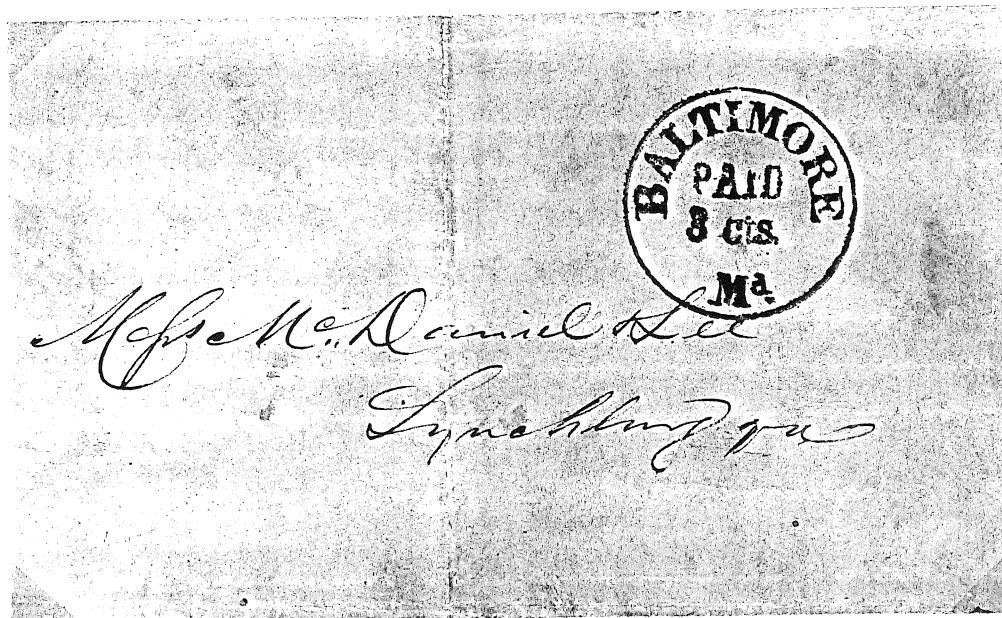 BALTIMORE
PAID
3 cts.
Md.
Messrs McDaniel & Lee
Lynchburg Va